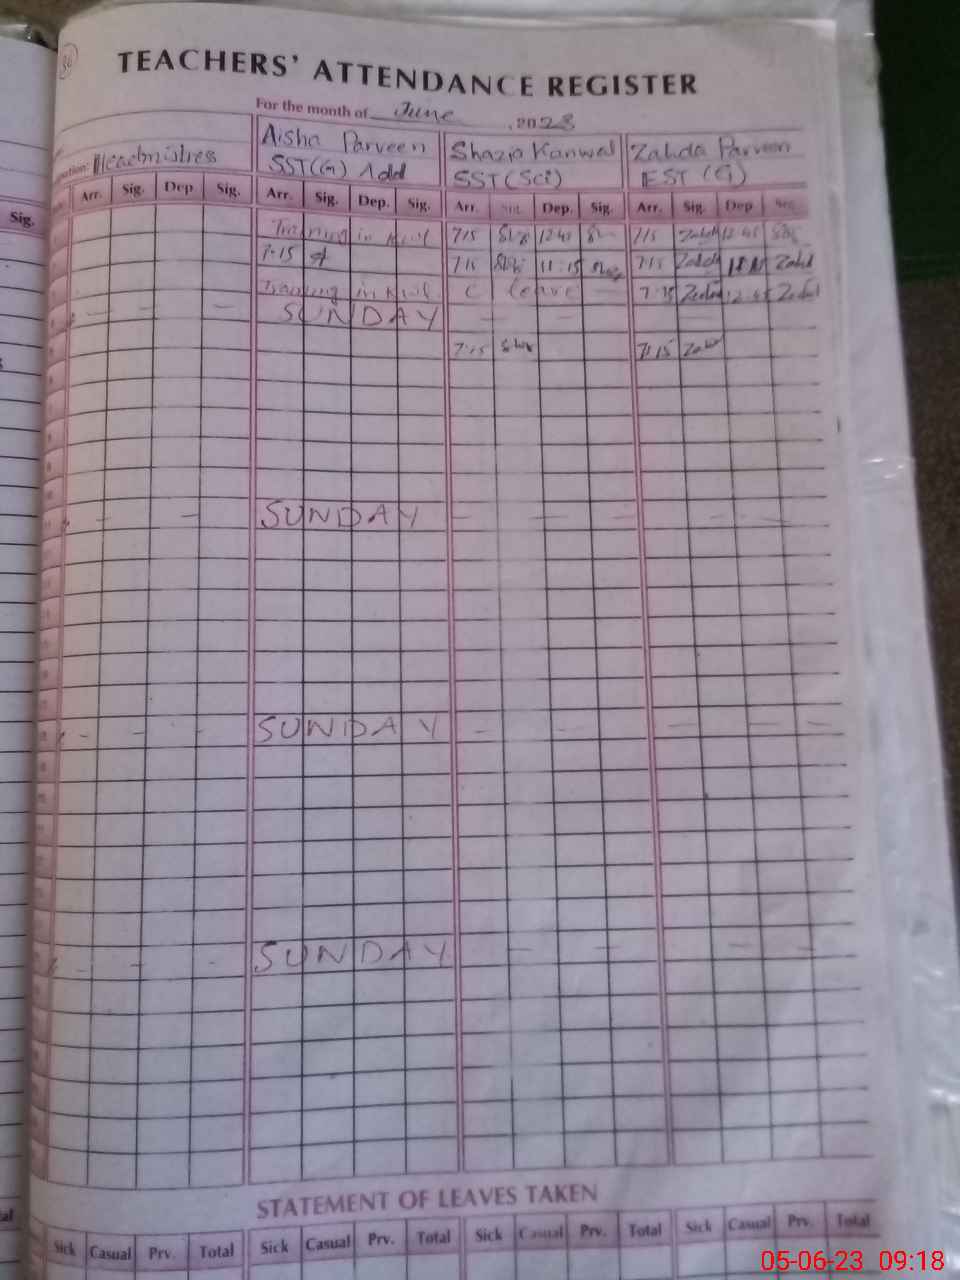 36
TEACHERS' ATTENDANCE REGISTER
For the month of June, 2023
Headmistres Aisha Parveen Shazia Kanwal Zahda Parveen
SST(G) Add SST(Sci) EST (G)
Sig. Arr. Sig. Dep Sig. Arr. Sig. Dep. Sig. Arr. Sig. Dep. Sig. Arr. Sig. Dep Sig.
Training in 715 12-45 715 12-45
7-15 715 11-15 715 Zahid
Training in C leave 7-15 12-45
SUNDAY
7-15 7-15
SUNDAY
SUNDAY
SUNDAY
STATEMENT OF LEAVES TAKEN
Sick Casual Prv. Total Sick Casual Prv. Total Sick Casual Prv. Total Sick Casual Prv. Total
05-06-23 09:18